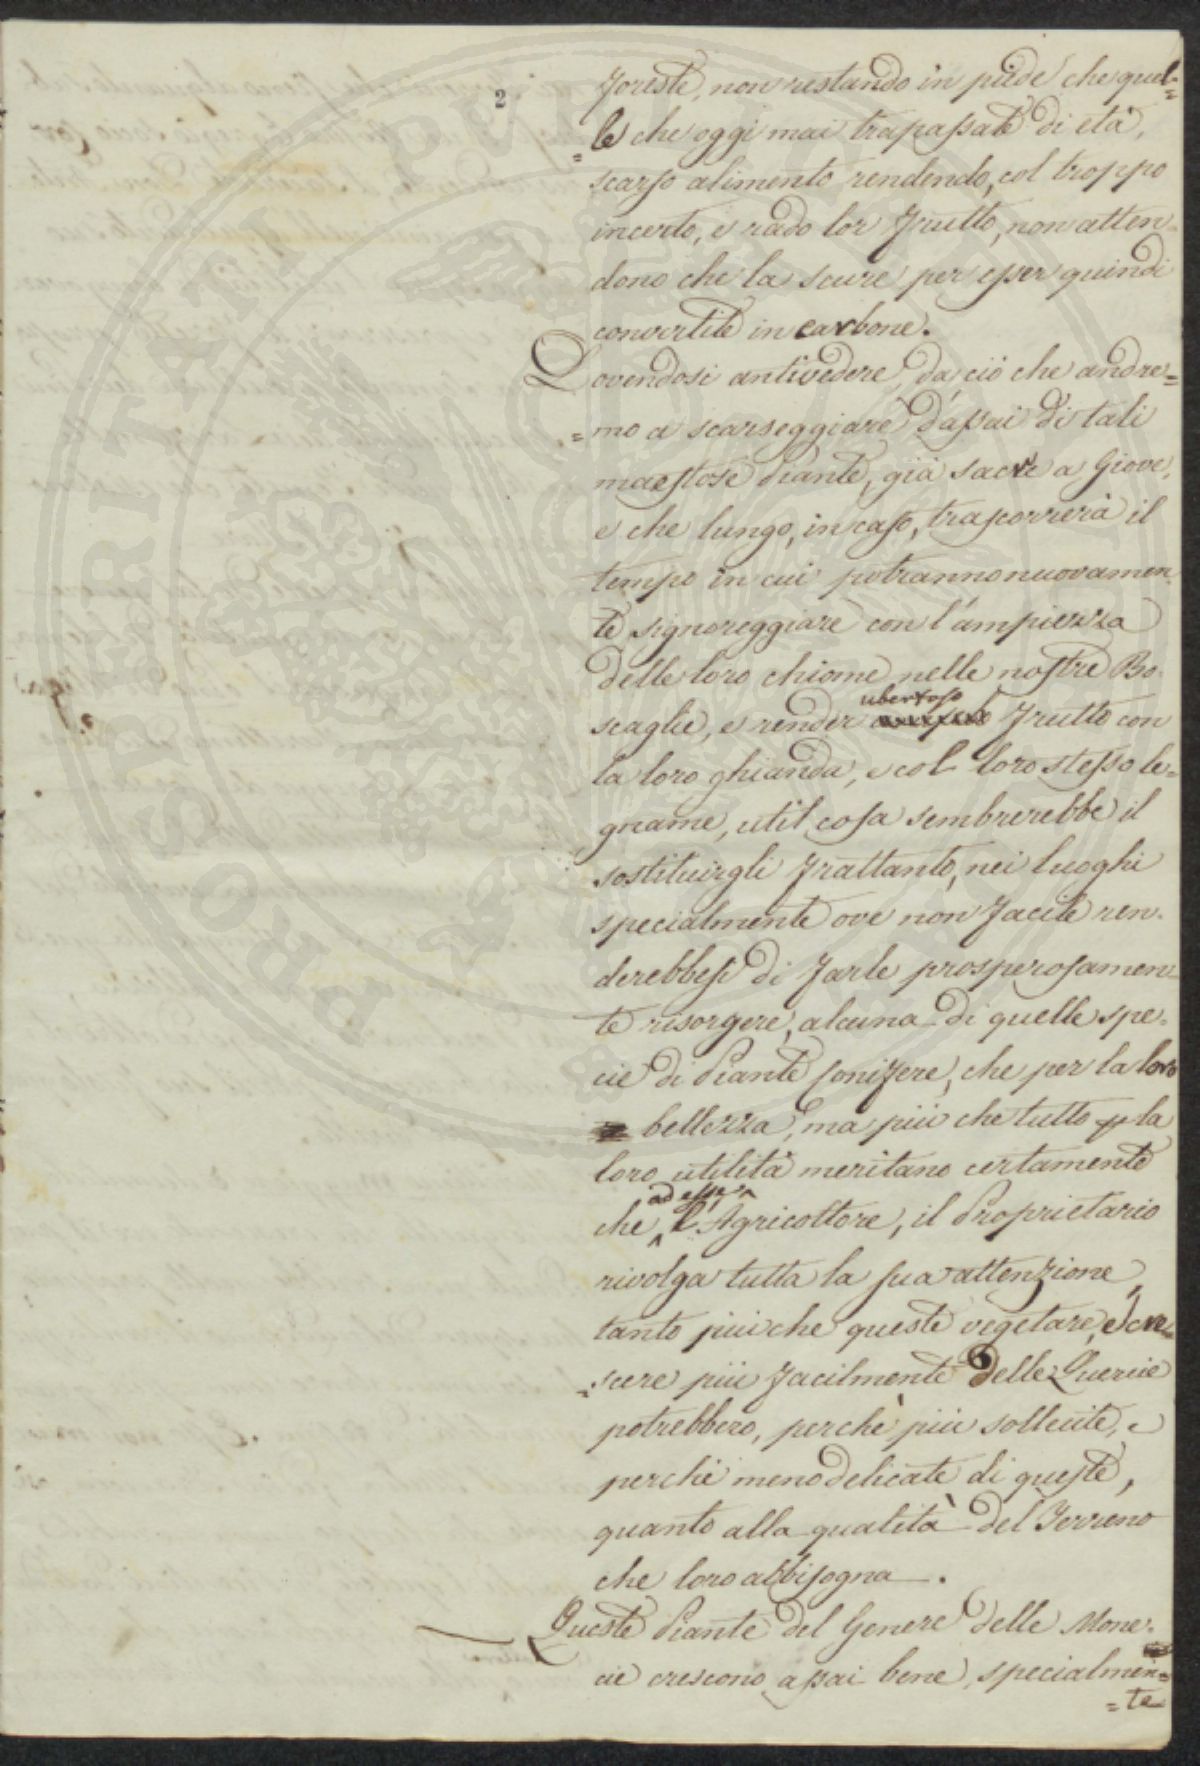 2
foreste, non restando in piede che quel=
=le che oggi mai trapassate di età,
scarso alimento rendendo, col troppo
incerto, e rado lor frutto, non atten-
dono che la scure per esser quindi
convertite in carbone.
Dovendosi antivedere, da ciò che andre=
=mo a scarseggiare d'assai di tali
maestose Piante, già sacre a Giove,
e che lungo, in caso, trascorrerà il
tempo in cui potranno nuovamen-
te signoreggiare con l'ampiezza
delle loro chiome nelle nostre Bo-
scaglie, e render ubertoso frutto con
la loro ghianda, e col loro stesso le=
gname, util cosa sembrerebbe il
sostituirgli frattanto, nei luoghi
specialmente ove non facile ren-
derebbesi di farle prosperosamen-
te risorgere, alcuna di quelle spe-
cie di Piante Conifere, che per la loro
bellezza, ma più che tutto p la
loro utilità meritano certamente
che ad esse l'Agricoltore, il Proprietario
rivolga tutta la sua attenzione,
tanto più che queste vegetare, e cre=
=scere più facilmente delle Quercie
potrebbero, perchè più sollecite, e
perchè meno delicate di queste,
quanto alla qualità del Terreno
che loro abbisogna.
Queste Piante del Genere delle Mone-
cie crescono assai bene, specialmen=
=te
PROSPERITATI PUBLICAE